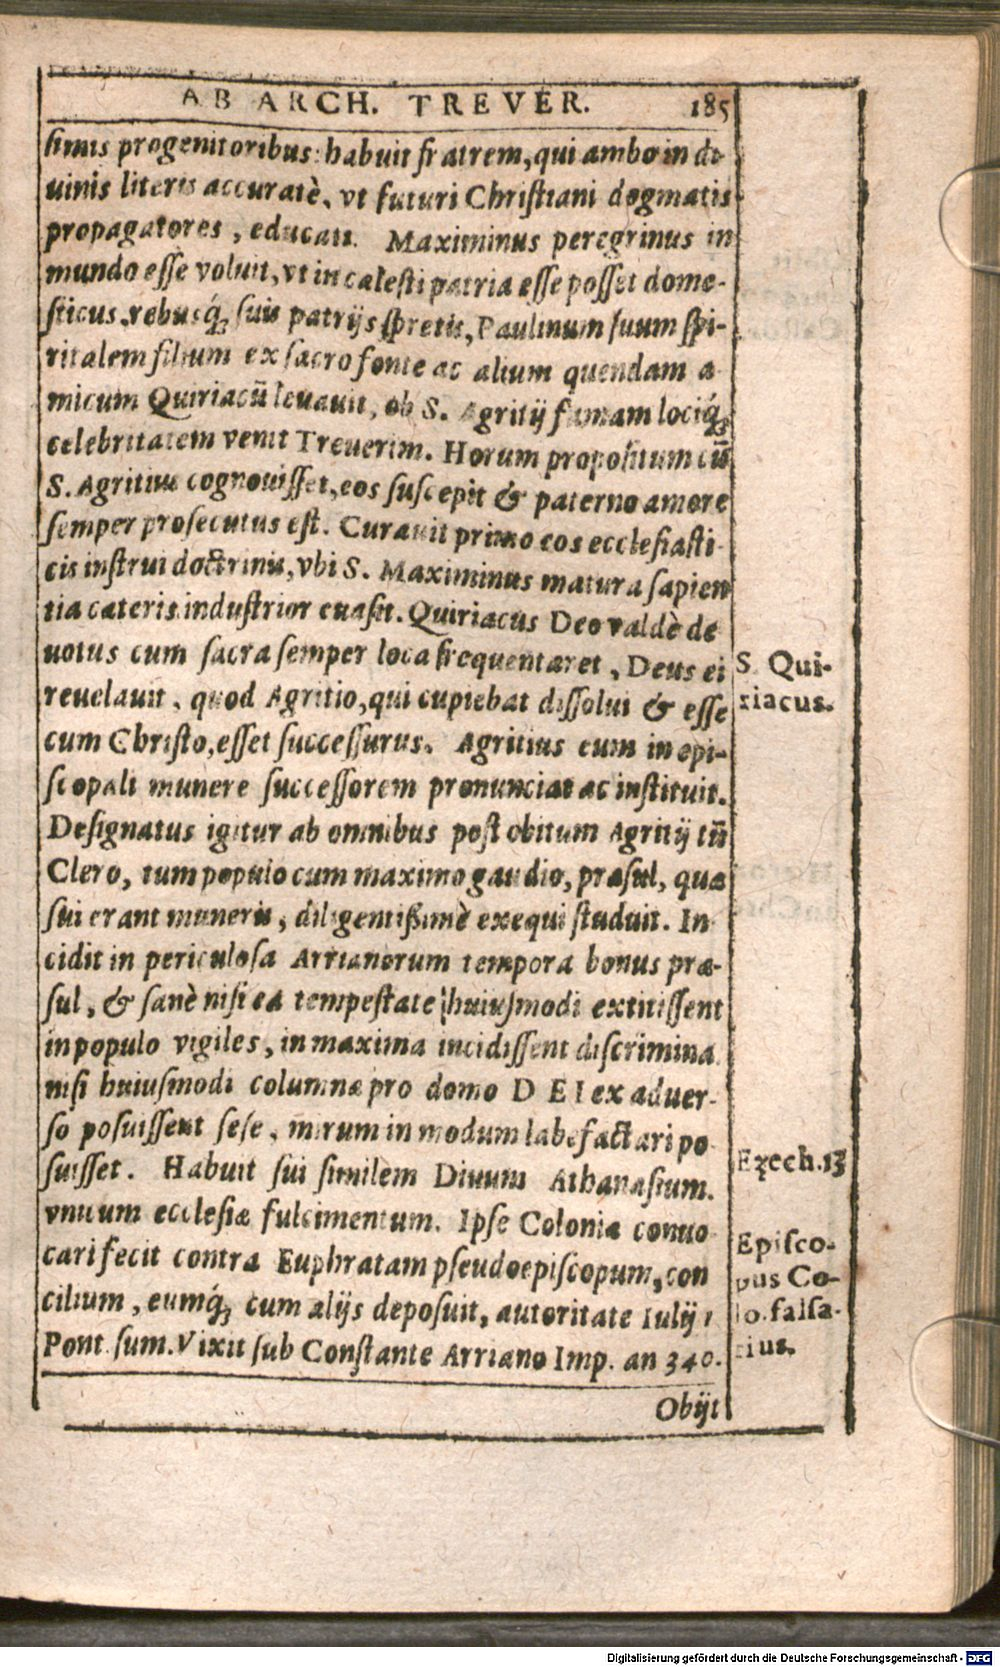 AB ARCH. TREVER. 185
simis progenitoribus: habuit fratrem, qui ambo in di-
uinis literis accuratè, vt futuri Christiani dogmatis
propagatores, educati. Maximinus peregrinus in
mundo esse voluit, vt in cælesti patria esse posset dome-
sticus, rebusq́; suis patrijs spretis, Paulinum suum spi-
ritalem filium ex sacro fonte ac alium quendam a-
micum Quiriacū leuauit, ob S. Agritij famam lociq́;
celebritatem venit Treuerim. Horum propositum cū
S. Agritius cognouisset, eos suscepit & paterno amore
semper prosecutus est. Curauit primo eos ecclesiasti-
cis instrui doctrinis, vbi S. Maximinus matura sapien
tia cæteris industrior euasit. Quiriacus Deo valdè de
uotus cum sacra semper loca frequentaret, Deus ei
reuelauit, quod Agritio, qui cupiebat dissolui & esse
cum Christo, esset successurus. Agritius eum in epi-
scopali munere successorem pronunciat ac instituit.
Designatus igitur ab omnibus post obitum Agritij tū
Clero, tum populo cum maximo gaudio, præsul, quæ
sui erant muneris, diligentißimè exequi studuit. In-
cidit in periculosa Arrianorum tempora bonus præ-
sul, & sanè nisi ea tempestate huiusmodi extitissent
in populo vigiles, in maxima incidissent discrimina
nisi huiusmodi columnæ pro domo DEI ex aduer-
so posuissent sese, mirum in modum labefactari po-
suisset. Habuit sui similem Diuum Athanasium.
vnicum ecclesiæ fulcimentum. Ipse Coloniæ conuo-
cari fecit contra Euphratam pseudoepiscopum, con
cilium, eumq́; cum alijs deposuit, autoritate Iulij 1
Pont. sum. Vixit sub Constante Arriano Imp. an 340.
Obijt
S. Qui-
riacus.
Ezech. 13
Episco-
pus Co-
lo. falsa-
rius.
Digitalisierung gefördert durch die Deutsche Forschungsgemeinschaft - DFG